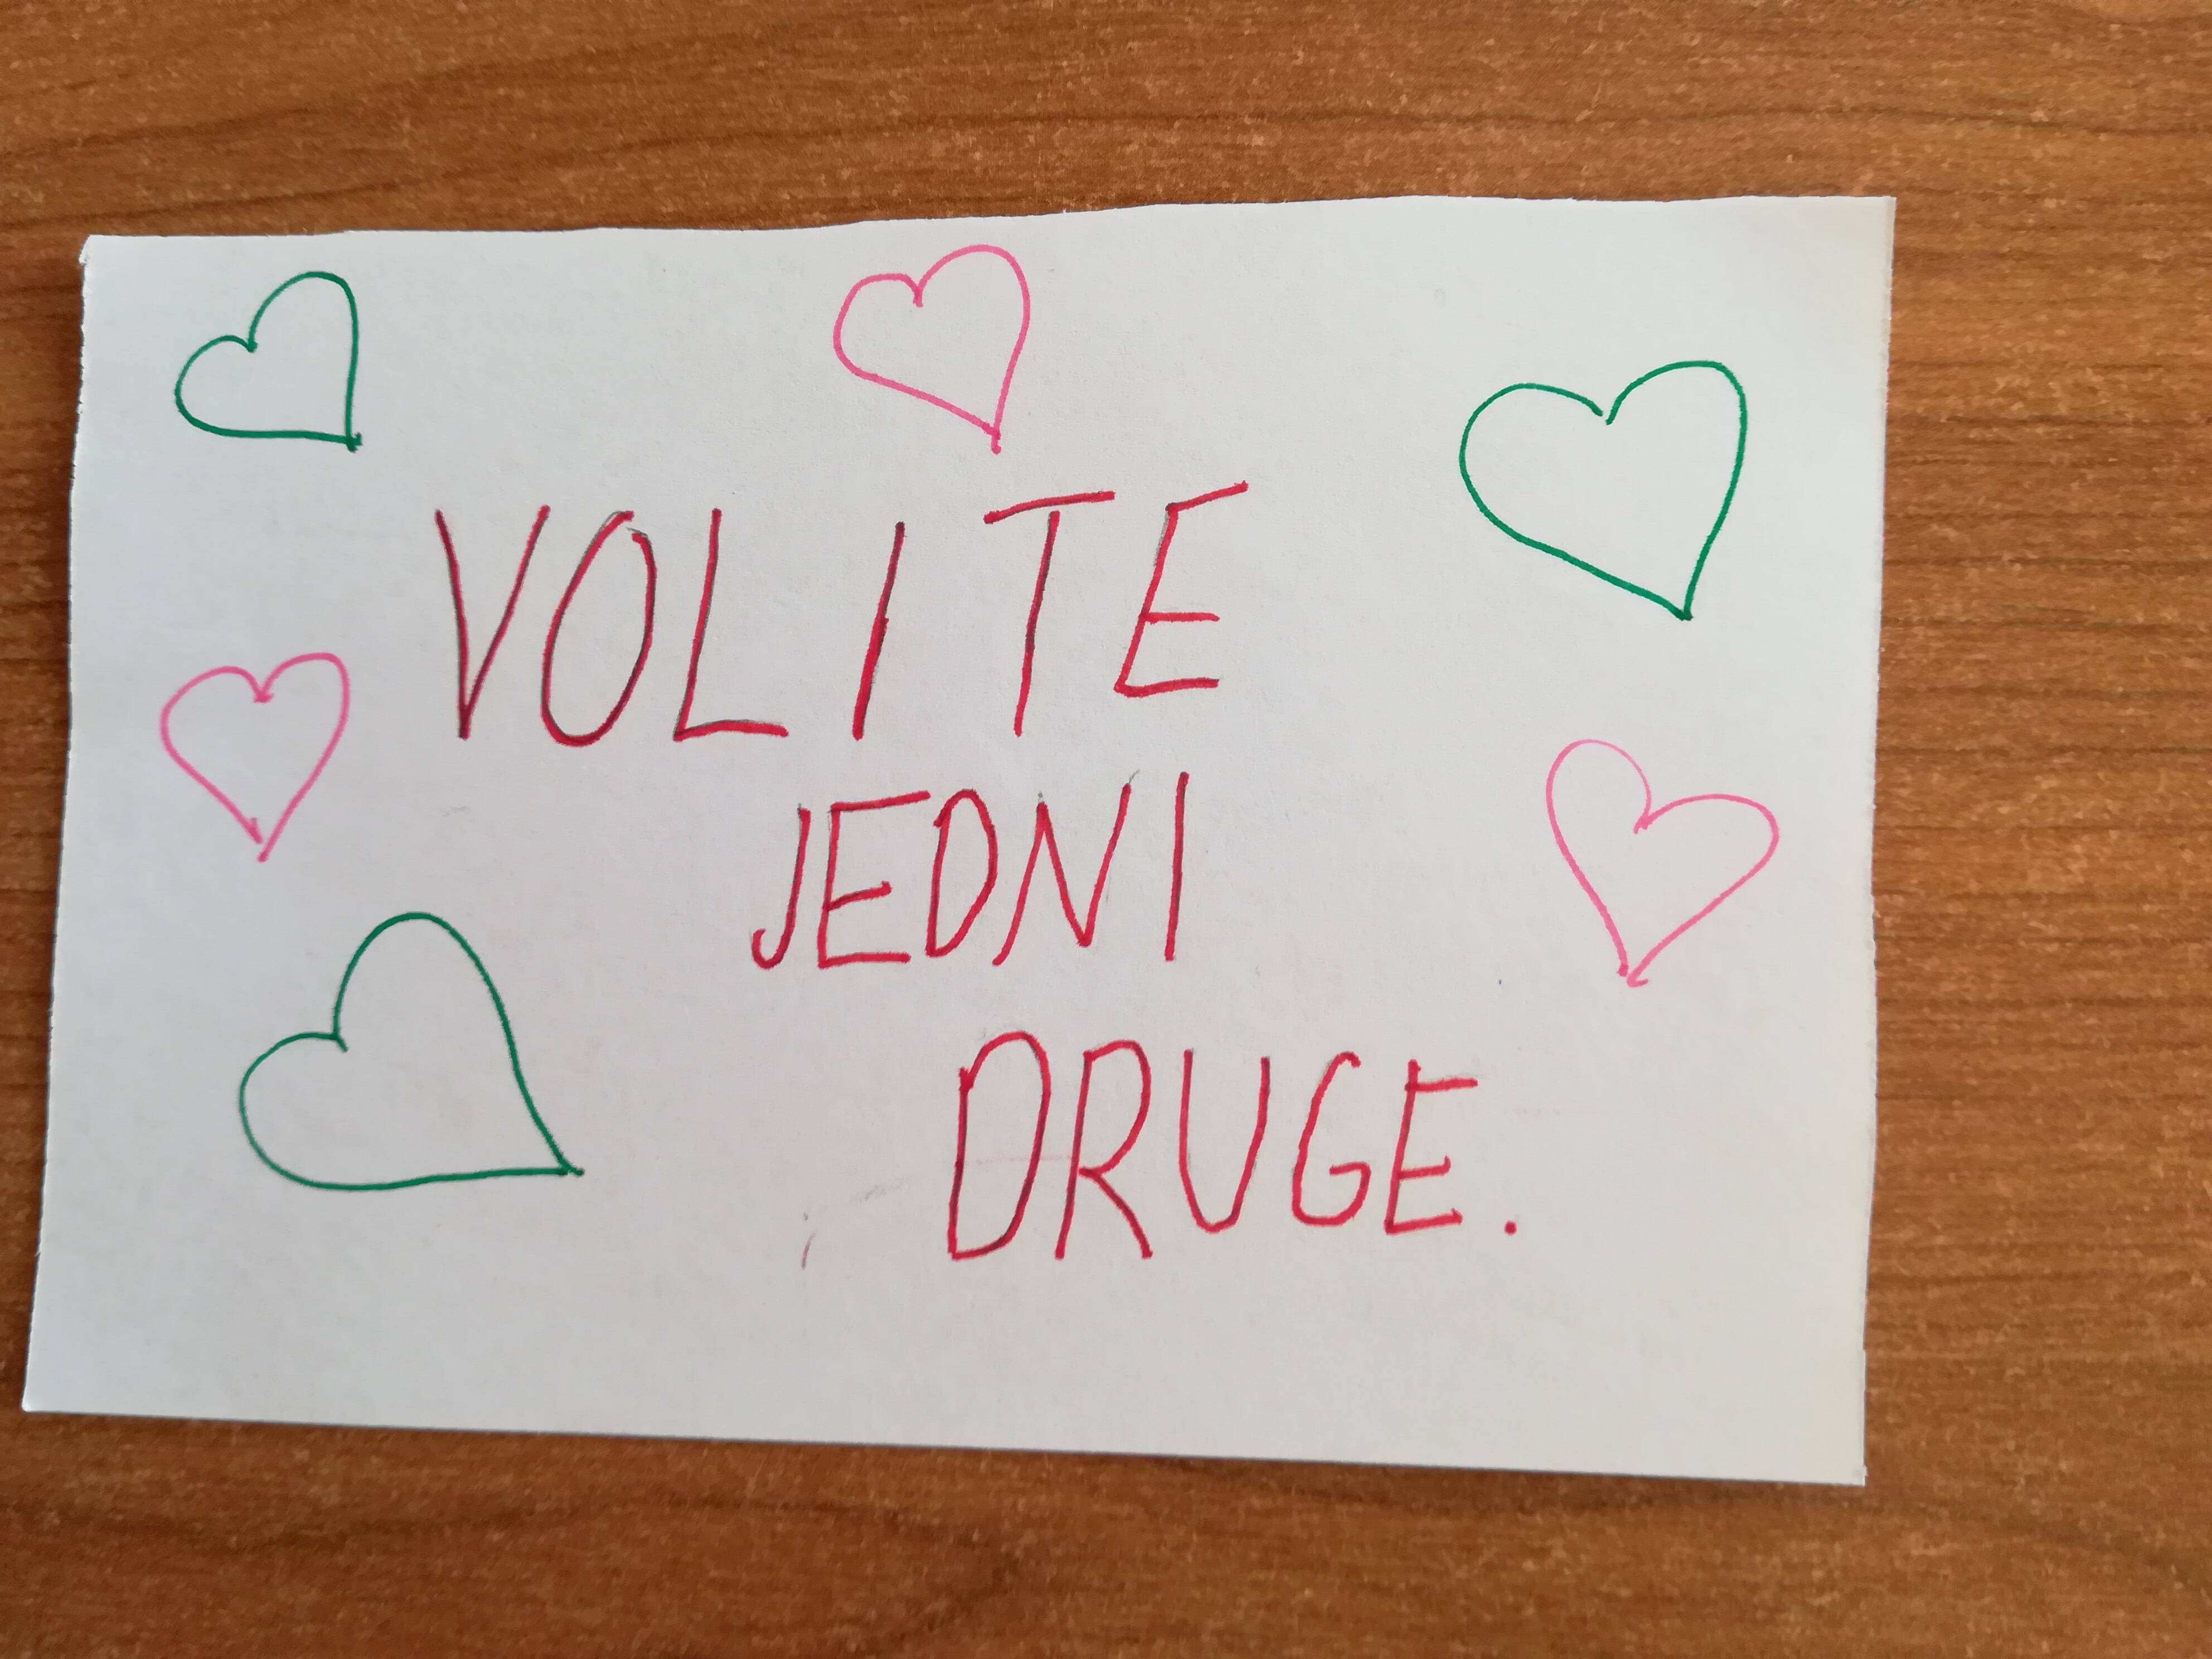 VOLITE
JEDNI
DRUGE.